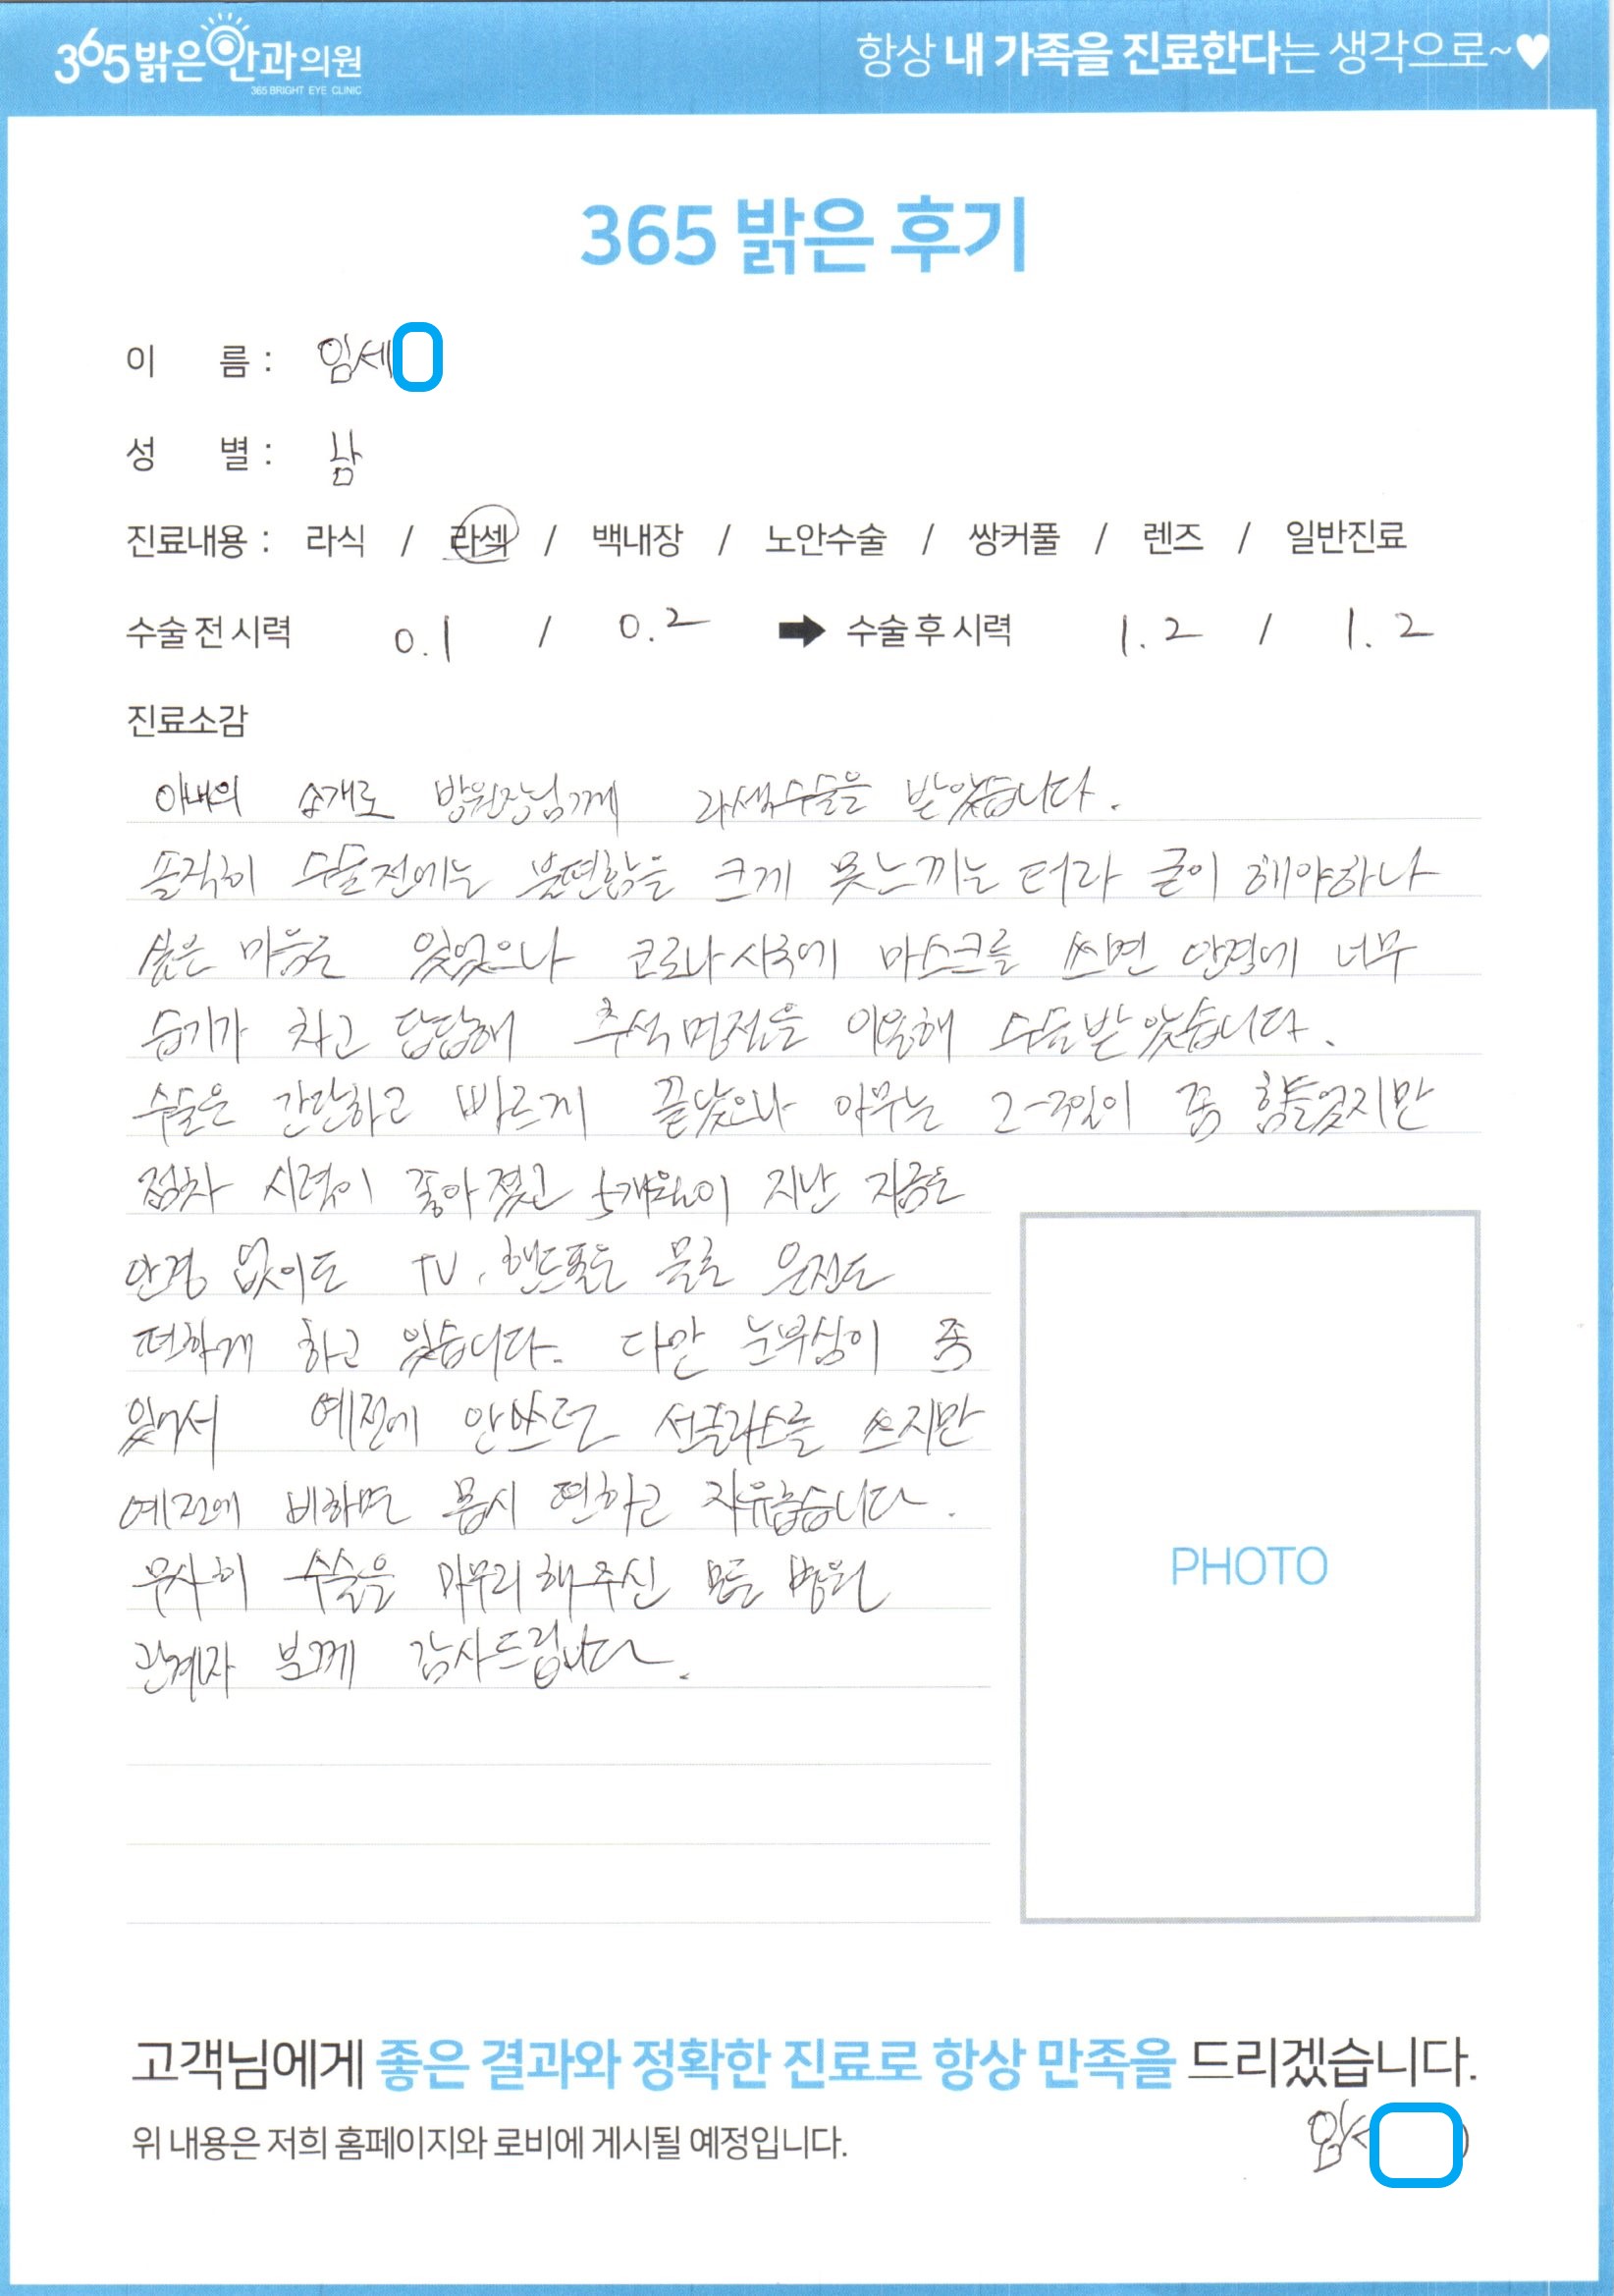 365 밝은안과의원
365 BRIGHT EYE CLINIC
항상 내 가족을 진료한다는 생각으로~♥
365 밝은 후기
이 름 : 임세
성 별 : 남
진료내용 : 라식 / 라섹 / 백내장 / 노안수술 / 쌍커풀 / 렌즈 / 일반진료
수술 전 시력 0.1 / 0.2 ➡ 수술 후 시력 1.2 / 1.2
진료소감
아내의 소개로 방원장님께 라섹수술을 받았습니다.
솔직히 수술전에는 불편함을 크게 못느끼는 터라 굳이 해야하나
싶은 마음도 있었으나 코로나시국에 마스크를 쓰면 안경에 너무
습기가 차고 답답해 추석명절을 이용해 수술받았습니다.
수술은 간단하고 빠르게 끝났으나 아무는 2-3일이 좀 힘들었지만
점차 시력이 좋아졌고 5개월이 지난 지금은
안경 없이도 TV, 핸드폰은 물론 운전도
편하게 하고 있습니다. 다만 눈부심이 좀
있어서 예전에 안쓰던 선글라스를 쓰지만
예전에 비하면 몹시 편하고 자유롭습니다.
무사히 수술을 마무리해주신 모든 병원
관계자 분께 감사드립니다.
PHOTO
고객님에게 좋은 결과와 정확한 진료로 항상 만족을 드리겠습니다.
위 내용은 저희 홈페이지와 로비에 게시될 예정입니다.
임